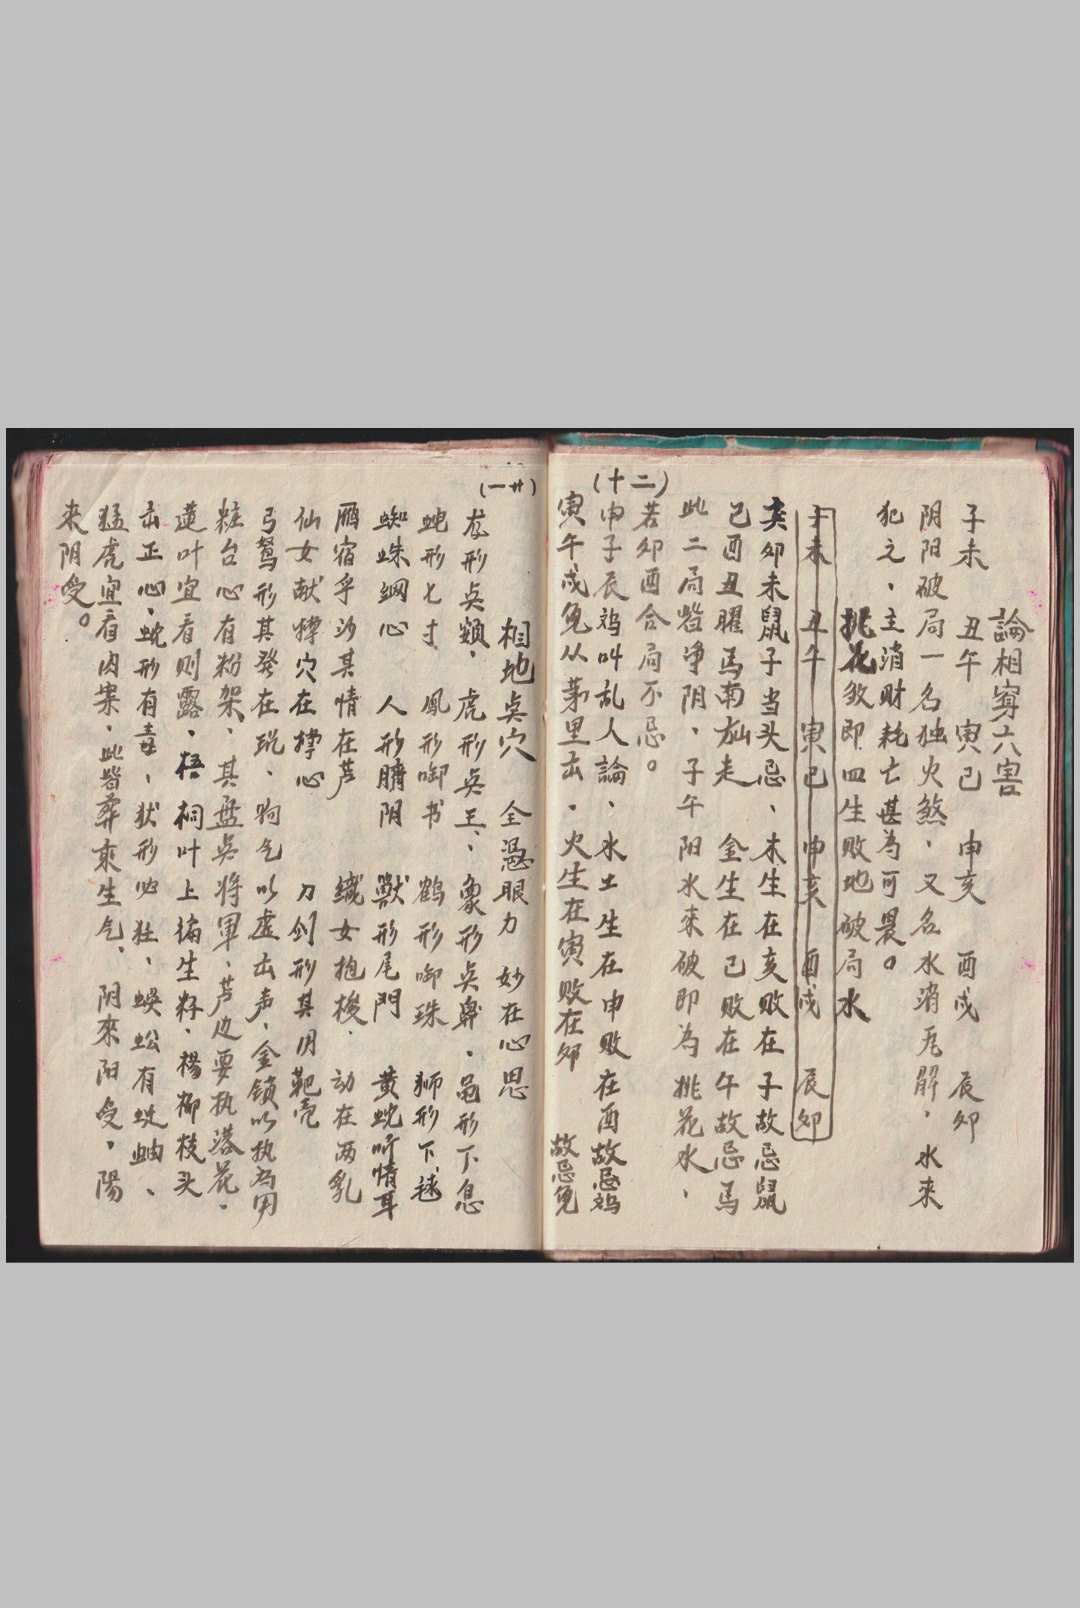 論相穿六害
子未　丑午　寅巳　申亥　酉戌　辰卯
阴阳破局一名独火煞、又名水消瓦解、水来
犯之、主消财耗亡甚為可畏。
桃花煞即四生败地破局水
子未　丑午　寅巳　申亥　酉戌　辰卯
亥卯未鼠子当头忌、木生在亥败在子故忌鼠
巳酉丑躍馬南方走　金生在巳败在午故忌馬
此二局皆净阴、子午阳水来破即為桃花水、
若卯酉合局不忌。
申子辰鸡叫乱人論、水土生在申败在酉故忌鸡
寅午戌兔从茅里出、火生在寅败在卯　故忌兔
(十二)
(廿一)
相地点穴　全憑眼力　妙在心思
龙形点頸、虎形点王、象形点鼻、黾形下息
蛇形七寸　鳳形啣书　鹤形啣珠　狮形下毬
蜘蛛網心　人形臍阴　獸形尾門　黄蛇听情耳
雁宿乎沙其情在芦　織女抱梭、动在两乳
仙女献　穴在　心　刀剑形其用靶壳
弓弩形其發在　、狗乞以虚出声、金锁以执為用
粧台心有粉架、其盘点将軍、芦边要执落花、
蓮叶宜看则露、梧桐叶上偏生籽、楊柳枝头
出正心、蛇形有毒、犾形必狂、蜈蚣有蚯蚰、
猛虎宜看肉案、此皆葬乘生乞、阴來阳受、陽
来阴受。